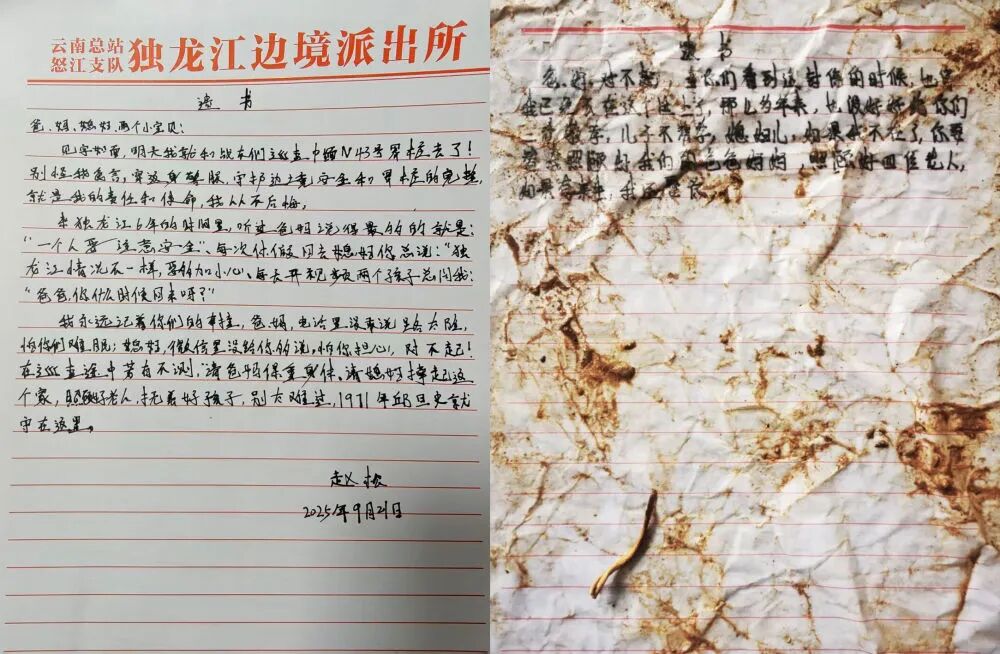 云南总站
怒江支队
独龙江边境派出所
遗书
爸、妈、媳妇、两个小宝贝:
见字如面,明天我就和战友们巡查中缅N43号界桩去了!
别怪我食言,穿这身藏服,守护边境安全和界桩的完整,
就是我的责任和使命,我从不后悔。
来独龙江6年的时间里,听过爸妈说得最多的就是:
“一个人要注意安全”、每次休假回去媳妇你总说:“独
龙江情况不一样,要多加小心、每次开视频两个孩子总问我:
“爸爸,你什么时候回来呀?”
我永远记着你们的牵挂,爸妈,电话里没敢说路太险,
怕你们难眠;媳妇,微信里没给你多说,怕你担心,对不起!
在巡查途中若有不测,请爸妈保重身体,请媳妇撑起这
个家,照顾好老人,抚养好孩子,别太难过,1971年
守在这里。
赵松
2025年9月21日
遗书
爸、妈、对不起,当你们看到这封信的时候,也许
我已经不在这个世上了,那么多年来,也没好好给你们
儿子不孝,媳妇儿,如果我不在了,你要
照顾好我们的爸爸妈妈,照顾好四位老人,
如果有来生,我还